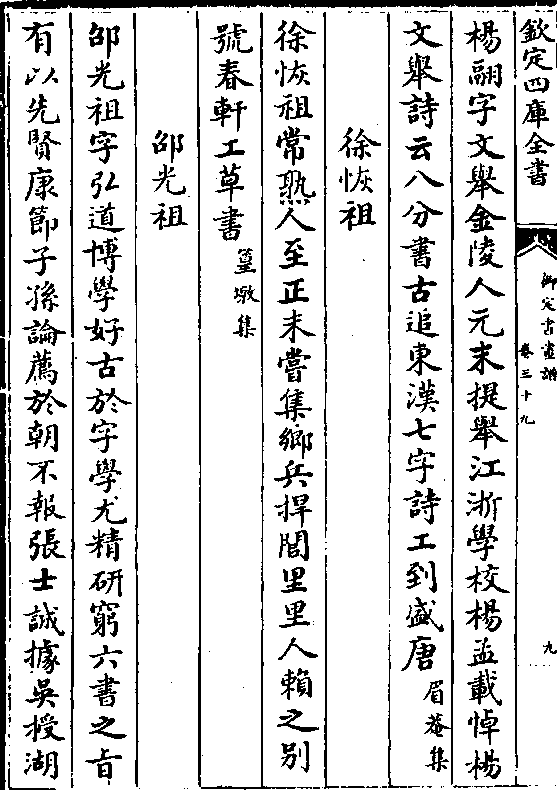 欽定四庫全書
御定書畫譜
卷三十九
九
楊翮字文舉金陵人元末提舉江浙學校楊孟載悼楊
文舉詩云八分書古追東漢七字詩工到盛唐眉菴集
徐恢祖
徐恢祖常熟人至正末嘗集鄉兵捍閭里里人賴之别
號春軒工草書篁墩集
邵光祖
邵光祖字弘道博學好古於字學尤精研窮六書之旨
有以先賢康節子孫論薦於朝不報張士誠據吳授湖